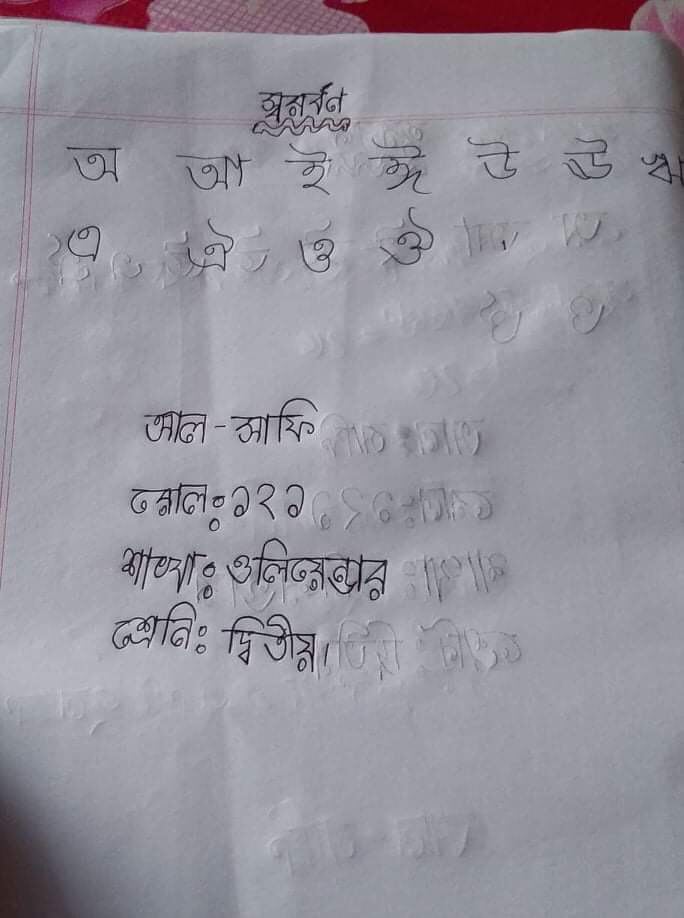 স্বরর্বন
অ আ ই ঈ উ ঊ ঋ
এ ঐ ও ঔ
আল - সাফি
রোল: ১২১
শাখা: ওলিয়েন্ডার
শ্রেনি: দ্বিতীয়।